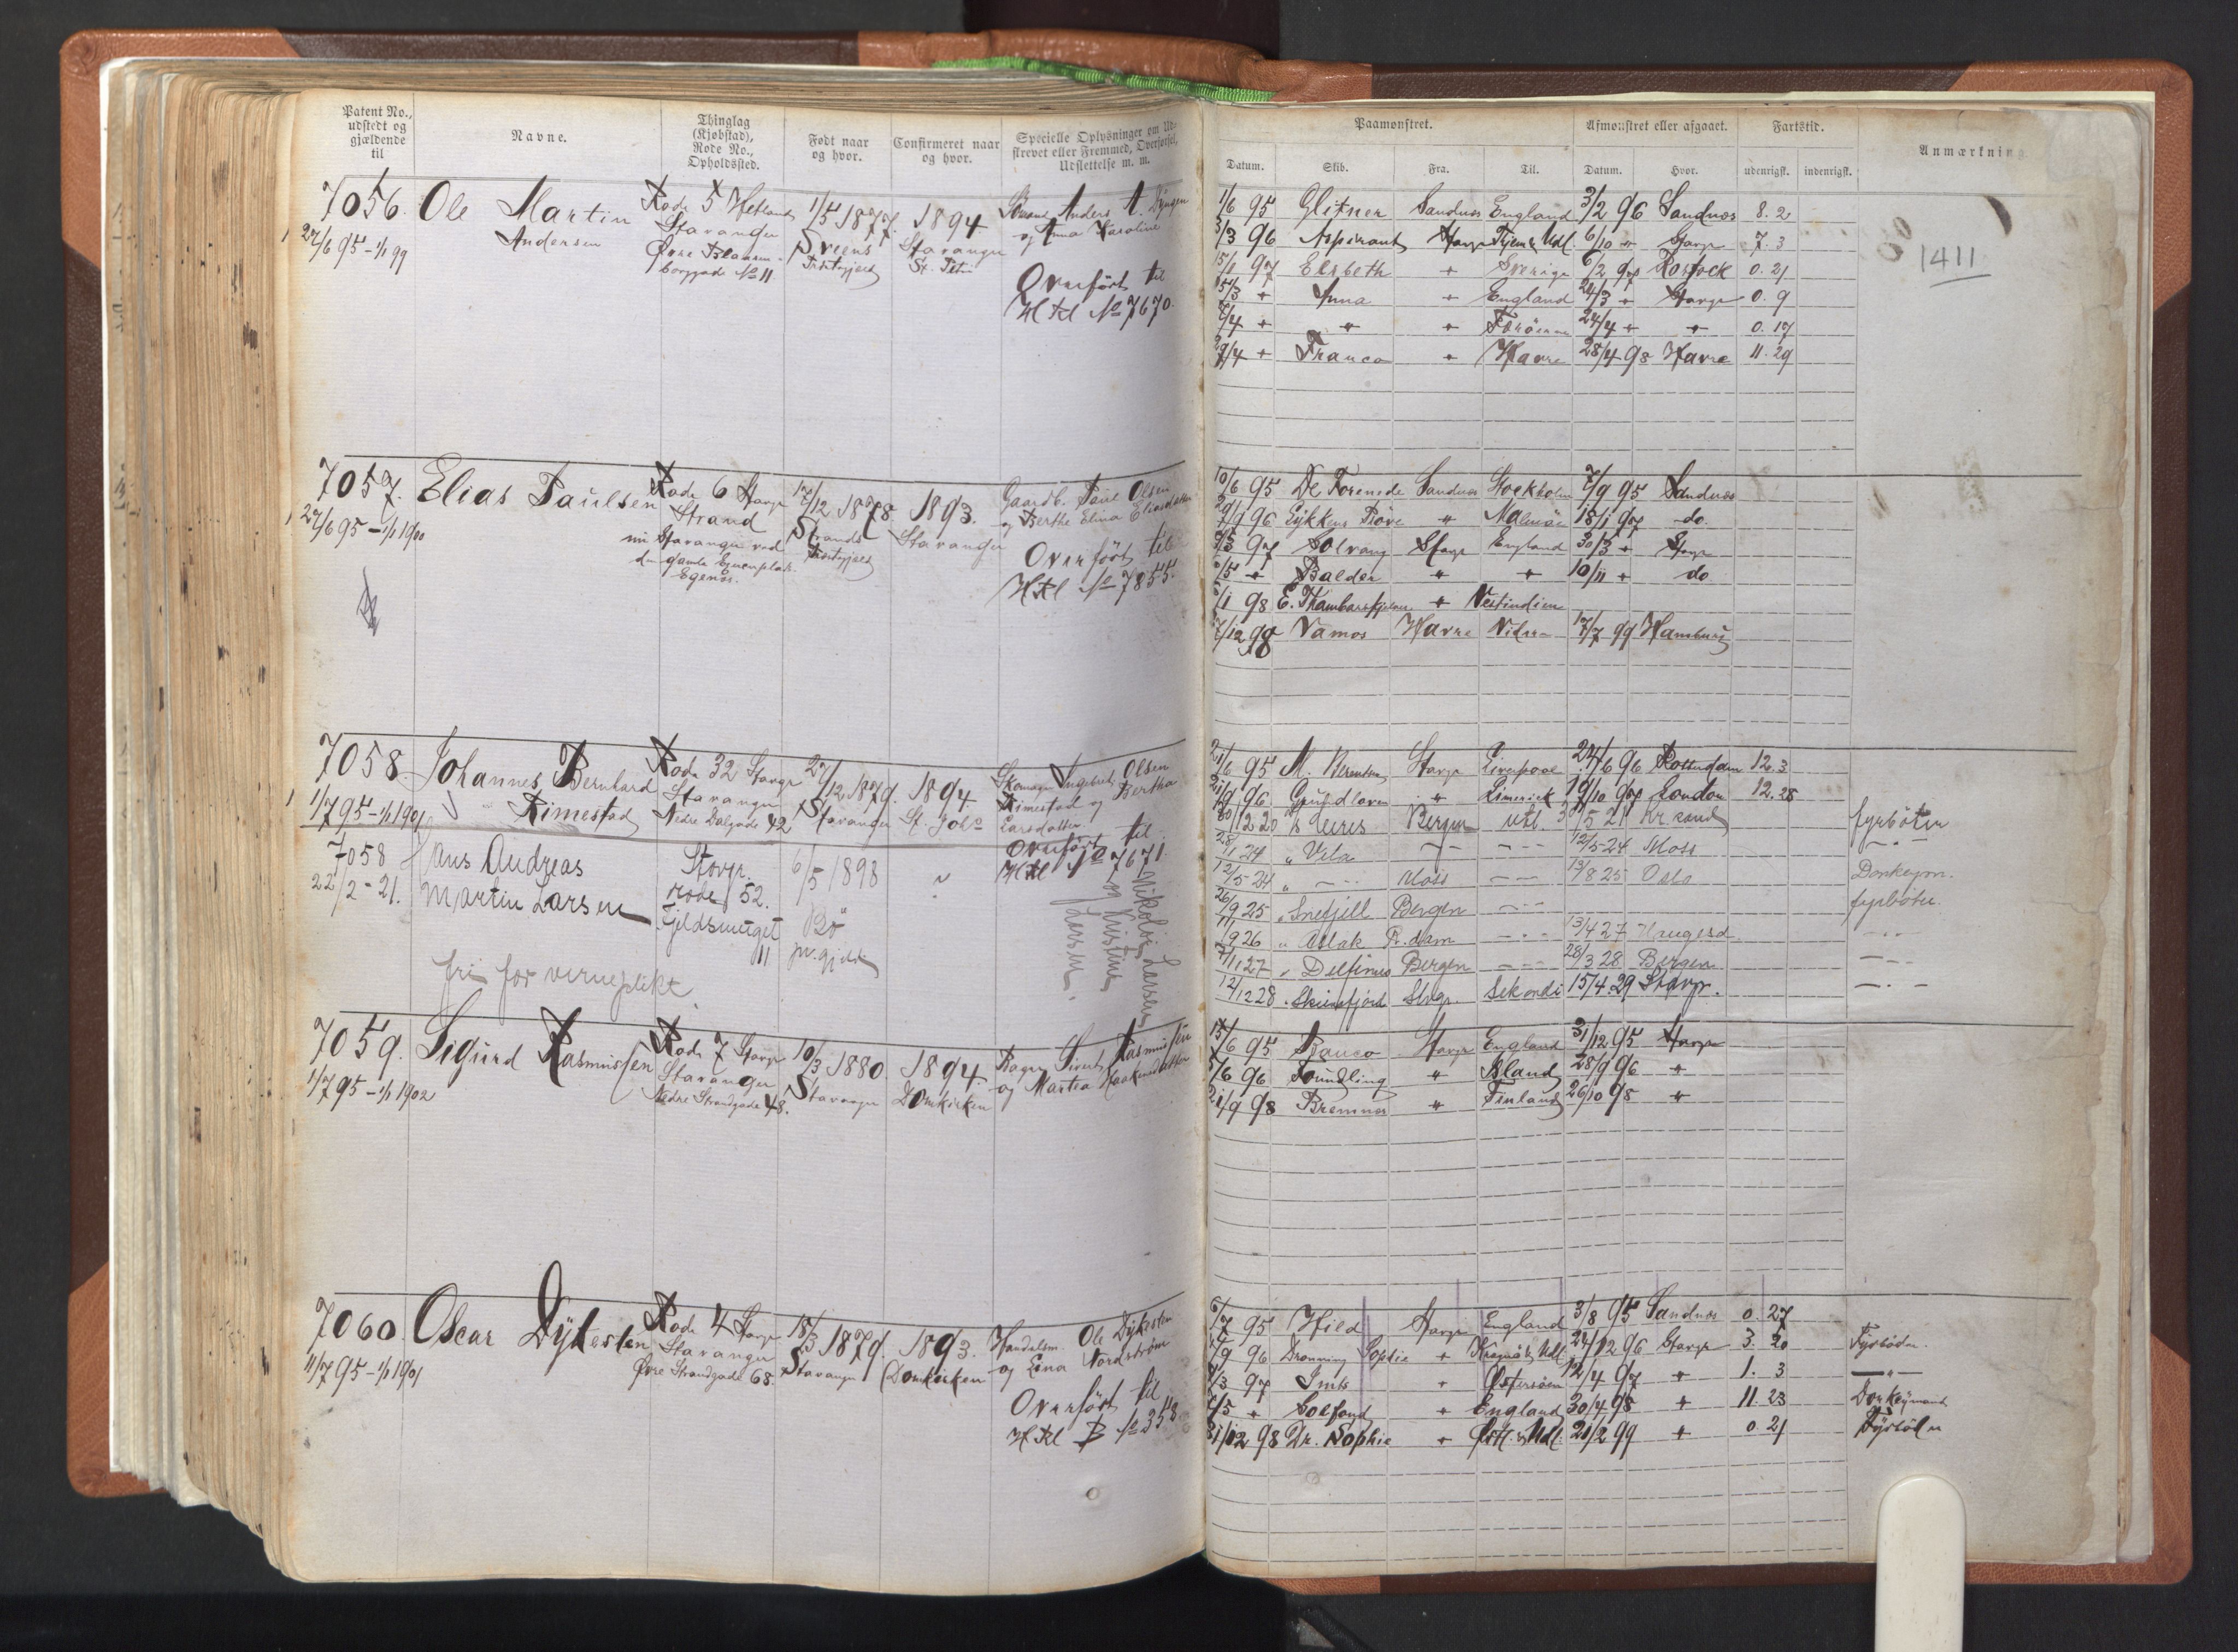 Patent No., udstedt og gjældende til
Navne.
Thinglag (Kjøbstad), Rode No., Opholdssted.
Født naar og hvor.
Confirmeret naar og hvor.
Specielle Oplysninger om Udskrevet eller Fremmed, Overførsel, Udslettelse m. m.
Paamønstret.
Afmønstret eller afgaaet.
Fartstid.
Anmærkning
Datum. Skib. Fra. Til. Datum. Hvor. udenrigsk. indenrigsk.
7056. Ole Martin Andersen
27/6 95 - 1/1 99
Rode 5 Hetland
Stavanger
Øvre Blaasen-
borggade No 11
1/5 1877.
Præstegjeld
1894
Stavanger
St. Petri
Anders A.
og Anna Karoline
Overført til
H Kl No 7670.
1/6 95 Glitner Sandnæs England 3/2 96 Sandnæs 8. 2
3/3 96 Aspirant Stavgr 6/10 " Stavgr 7. 3
15/1 97 Elsbeth " Sverige 6/2 97 Rostock 0. 21
15/3 " Anna " England 24/3 " Stavgr 0. 9
7/4 " " " Færöerne 24/4 " " 0. 17
29/4 " Franco " Havre 28/4 98 Havre 11. 29
1411
7057. Elias Paulsen
27/6 95 - 1/1 1900
Rode 6 Stavgr
Strand
nu Stavanger ved
Egenæs.
17/12 1878.
Strands
Præstegjeld
1893.
Stavanger
Gaardb. Paul Olsen
og Berthe Elina Eliasdatter
Overført til
H Kl No 7855.
10/6 95 De Forenede Sandnæs Stockholm 7/9 95 Sandnæs
29/9 96 Lykkens Prøve " Malmø 18/1 97 do.
3/3 97 Solvang Stavgr England 30/3 " Stavgr
/5 " Balder " " 10/11 " do
/1 98 E. Thambarskjelver " Vestindien
7/12 98 Vamos Havre Videre 17/7 99 Hamburg
7058. Johannes Bernhard Rimestad
1/7 95 - 1/1 1901
Rode 32 Stavgr
Stavanger
Nedre Dalgade 42
27/12 1879.
Stavanger
1894.
St. Johs
Skomager Ingebret Olsen
Rimestad og Bertha
Larsdatter
Overført til
H Kl No 7671.
21/6 95 M. Berentsen Stavgr Liverpool 24/6 96 Rotterdam 12. 3
21/9 96 Grundloven " Limerick 19/10 97 London 12. 28
7058 Hans Andreas
22/2 - 21. Martin Larsen
Stavgr.
rode 52.
Fjeldsmuget
11
6/5 1898
Bø
pr.gjeld
Nikolai Larsen
og Kristine
Larsen.
fri for verneplikt
30/12 20 Ceres Bergen utl. /5 21 Kr.sand fyrbøter
28/1 24 " Vela — — 12/5-24 Moss — " —
12/5-24 " — Moss — 13/8 25 Oslo Donkeym.
26/9 25 " Snefjell Bergen — fyrbøter
/9 26 " Aslak R.dam — 13/4 27 Haugesd. — " —
7/11 27 " Delfinus Bergen — 28/3 28 Bergen — " —
12/12 28 " Skiensfjord Stvgr. Sekondi 15/4.29 Stavgr. — " —
7059. Sigurd Rasmussen
1/7 95 - 1/1 1902
Rode 7 Stavgr
Stavanger
Nedre Strandgade 48.
10/3 1880.
Stavanger
1894.
Domkirken
Bager Sivert Rasmussen
og Martea Haakonsdatter
15/6 95 Stavgr England 31/12 95 Stavgr
/6 96 Foundling " Island 28/9 96 "
21/9 98 Bremnæs " Finland 26/10 98 "
7060. Oscar Dykesten
11/7 95 - 1/1 1901
Rode 4 Stavgr
Stavanger
Øvre Strandgade 68.
18/3 1879.
Stavanger
1893.
Domkirken
Handelsm. Ole Dykesten
og Lina Nordstrøm
Overført til
H Kl B No 353
6/7 95 Hild Stavgr England 3/8 95 Sandnæs 0. 27
/9 96 Dronning Sophie " 24/12 96 Stavgr 3. 20 Fyrbøder.
/3 97 " Østersøen 12/4 97 " 1. 3 — " —
/5 " Solfond " England 30/4 98 " 11. 23 Donkeymand
31/12 98 Dr. Sophie " Østl. & Udl. 21/2 99 " 0 21 Fyrbøder